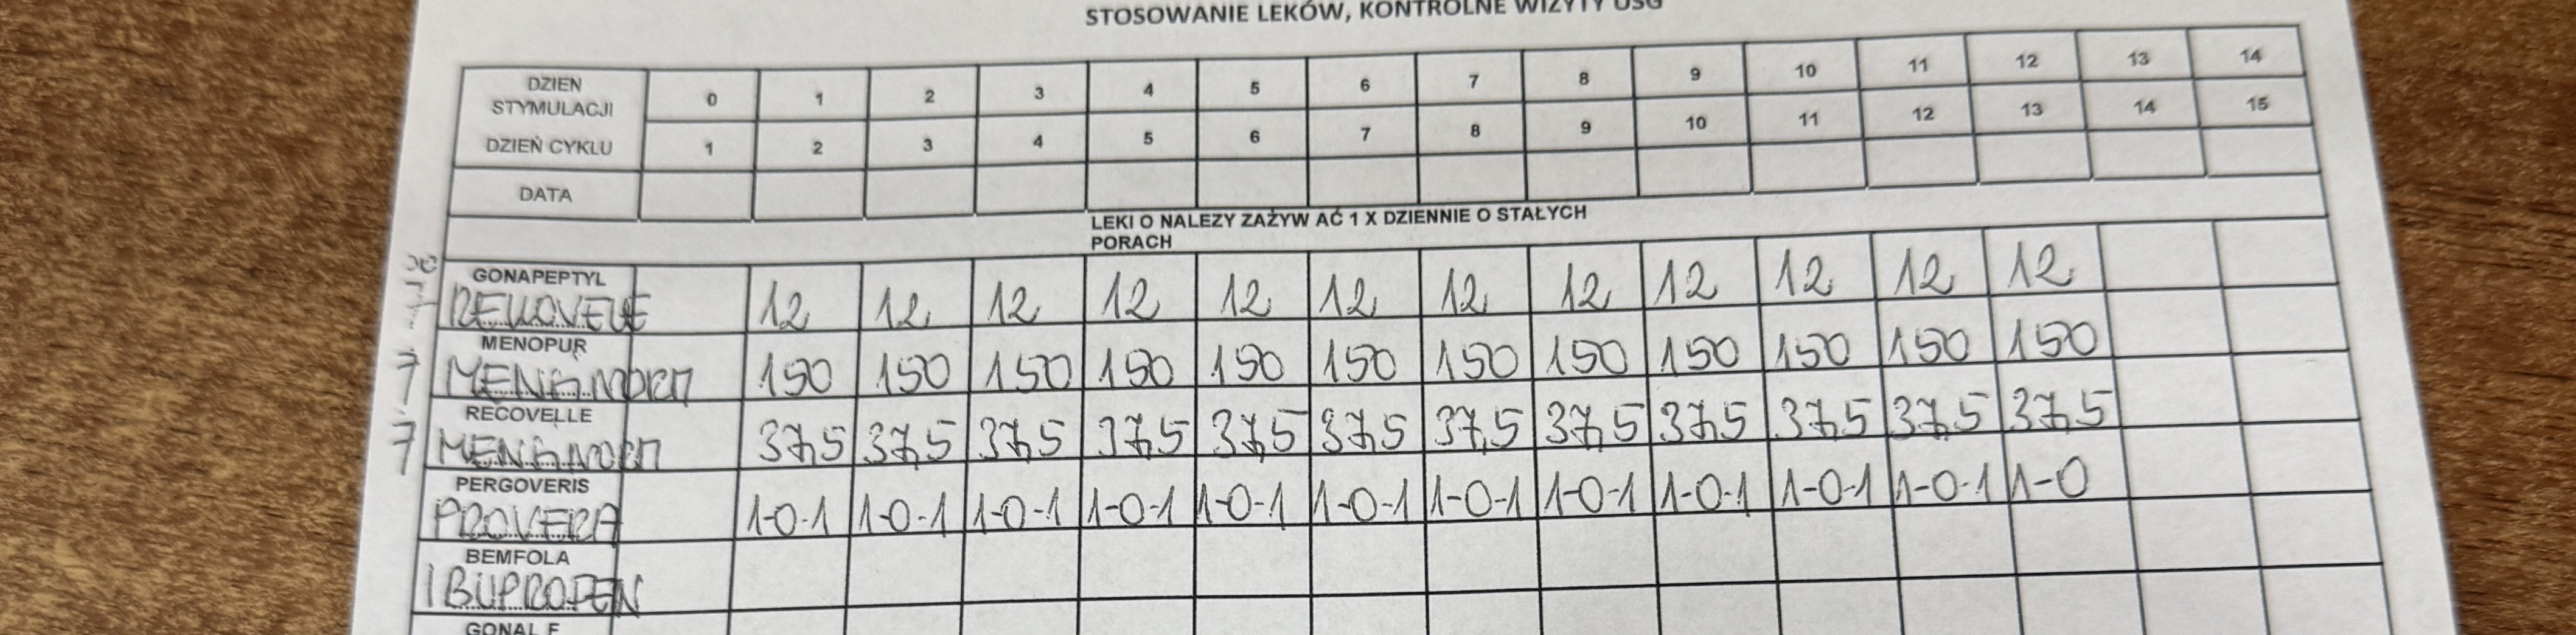 STOSOWANIE LEKÓW, KONTROLNE WIZYTY USG
DZIEN STYMULACJI 0 1 2 3 4 5 6 7 8 9 10 11 12 13 14
DZIEŃ CYKLU 1 2 3 4 5 6 7 8 9 10 11 12 13 14 15
DATA
LEKI O NALEZY ZAŻYW AĆ 1 X DZIENNIE O STAŁYCH
PORACH
GONAPEPTYL
12 12 12 12 12 12 12 12 12 12 12 12
MENOPUR
7 150 150 150 150 150 150 150 150 150 150 150 150
RECOVELLE
7 37,5 37,5 37,5 37,5 37,5 37,5 37,5 37,5 37,5 37,5 37,5 37,5
PERGOVERIS
PROVERA 1-0-1 1-0-1 1-0-1 1-0-1 1-0-1 1-0-1 1-0-1 1-0-1 1-0-1 1-0-1 1-0-1 1-0
BEMFOLA
IBUPROFEN
GONAL F